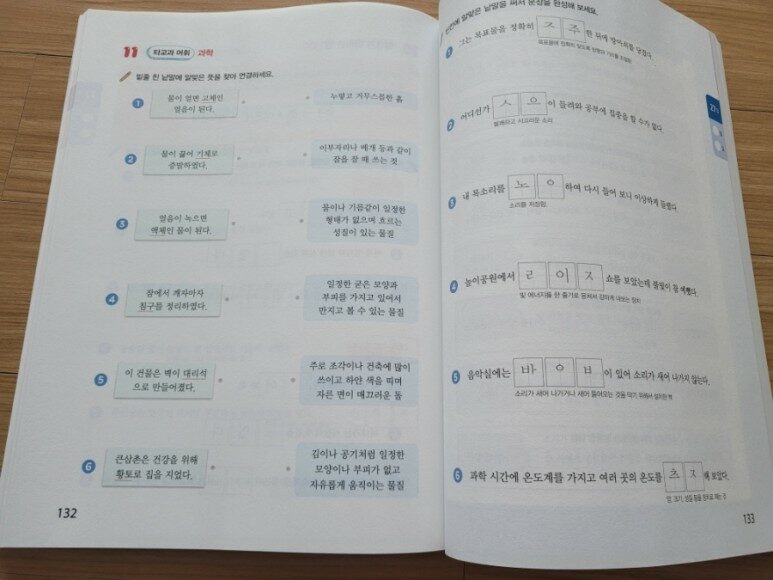 11 타교과 어휘 과학
밑줄 친 낱말에 알맞은 뜻을 찾아 연결하세요.
1 물이 얼면 고체인
얼음이 된다.
누렇고 거무스름한 흙
2 물이 끓어 기체로
증발하였다.
이부자리나 베개 등과 같이
잠을 잘 때 쓰는 것
3 얼음이 녹으면
액체인 물이 된다.
물이나 기름같이 일정한
형태가 없으며 흐르는
성질이 있는 물질
4 잠에서 깨자마자
침구를 정리하였다.
일정한 굳은 모양과
부피를 가지고 있어서
만지고 볼 수 있는 물질
5 이 건물은 벽이 대리석
으로 만들어졌다.
주로 조각이나 건축에 많이
쓰이고 하얀 색을 띠며
자른 면이 매끄러운 돌
6 큰삼촌은 건강을 위해
황토로 집을 지었다.
김이나 공기처럼 일정한
모양이나 부피가 없고
자유롭게 움직이는 물질
132
빈칸에 알맞은 낱말을 써서 문장을 완성해 보세요.
1 그는 목표물을 정확히 ㅈ 주 한 뒤에 방아쇠를 당겼다.
2 어디선가 ㅅ 으 이 들려와 공부에 집중을 할 수가 없다.
불쾌하고 시끄러운 소리
3 내 목소리를 노 으 하여 다시 들어 보니 이상하게 들렸다.
소리를 저장함.
4 놀이공원에서 ㄹ 이 ㅈ 쇼를 보았는데 불빛이 참 예뻤다.
빛 에너지를 한 줄기로 뭉쳐서 강하게 내보는 장치
5 음악실에는 바 으 ㅂ 이 있어 소리가 새어 나가지 않는다.
소리가 새어 나가거나 새어 들어오는 것을 막기 위해서 설치한 벽
6 과학 시간에 온도계를 가지고 여러 곳의 온도를 츠 ㅈ 해 보았다.
133